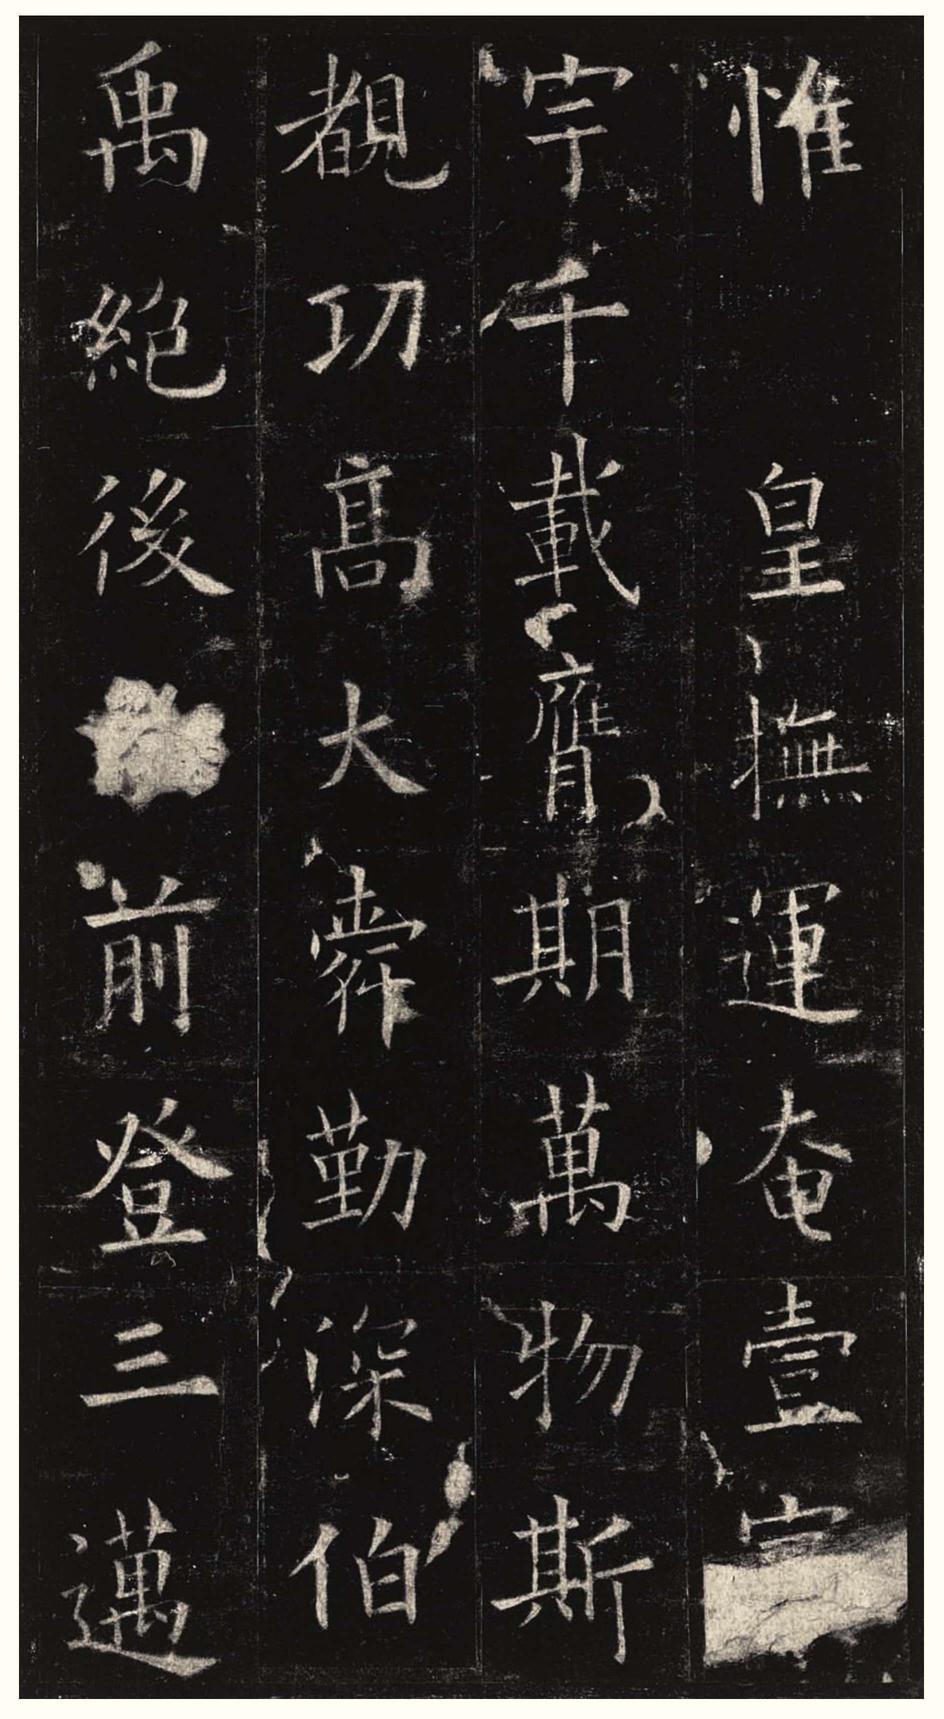 惟 皇撫運奄壹
宇千載膺期萬物斯
覩功髙大舜勤深伯
禹絶後前登三邁